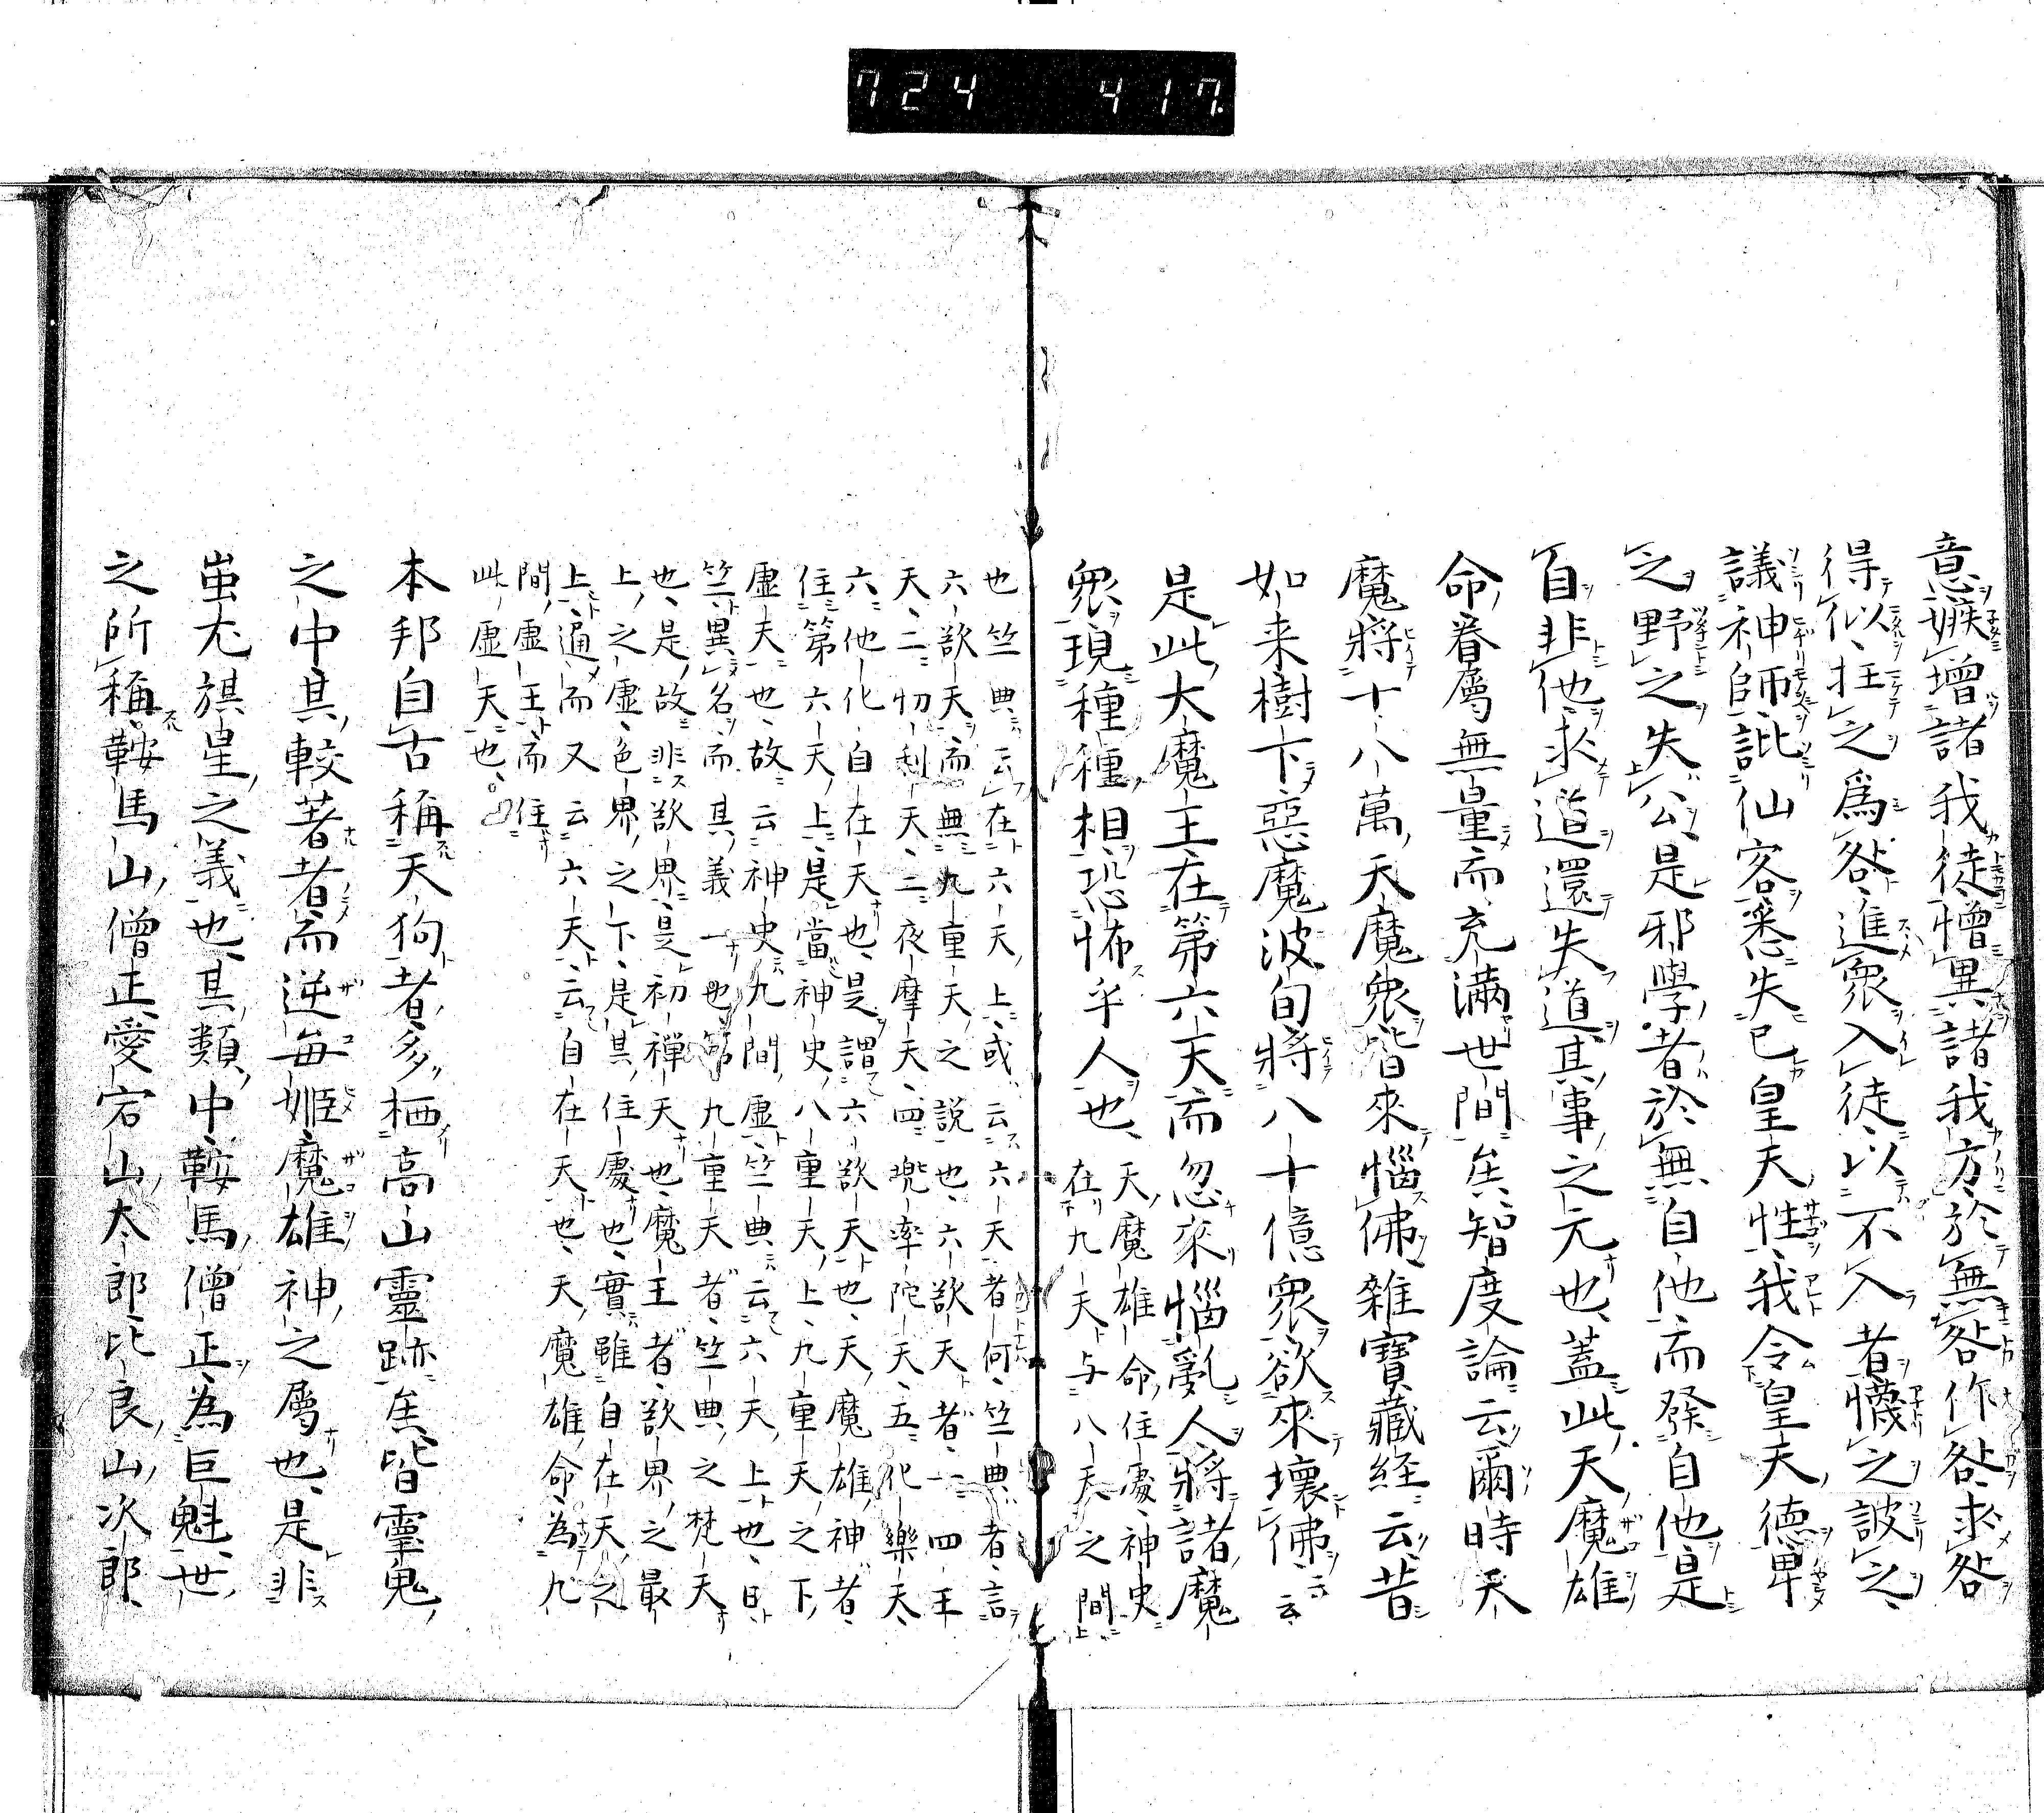 724 417
意嫉増諸我徒憎異諸我方於無咎作咎求咎
得似、抂之為咎、進衆入徒、以不入者懱之詖之、
議神師訿仙客、悉失已皇天性、我令皇天、德卑
之野之失公、是邪學者、於無自他而發自他、是
自非他、求道還失道、其事之元也、蓋此天魔雄
命、眷属無量而充満世間矣、智度論云、爾時天
魔將十八萬天魔衆皆來惱佛、雜寶藏経云、昔
如来樹下、惡魔波旬將八十億衆、欲來壞佛、云云
是此大魔王在第六天而忽來惱亂人、將諸魔
衆現種種相恐怖乎人也、
天魔雄命住處、神史
在九天与八天之間
也竺典云、在六天上、或云六天者何、竺典者言
六欲天、而無九重天之説也、六欲天者、一四王
天、二忉利天、三夜摩天、四兜率陀天、五化樂天、
六他化自在天也、是謂六欲天也、天魔雄神者
住第六天上、是當神史八重天上、九重天之下、
虚天也、故云神史九間虚、竺典云六天上也、日
竺異名而其義一也、第九重天者、竺典之梵天
也、是故非欲界、是初禅天也、魔王者欲界之最
上之虚、色界之下、是其住處也、實雖自在天之
上、通而又云六天、云自在天也、天魔雄命為九
間虚王而住
此虚天也、
本邦自古稱天狗者、多栖高山靈跡矣、皆靈鬼
之中其較著者、而逆毎姫魔雄神之屬也、是非
蚩尤旗星之義也、其類中鞍馬僧正為巨魁、世
之所稱鞍馬山僧正、愛宕山太郎、比良山次郎